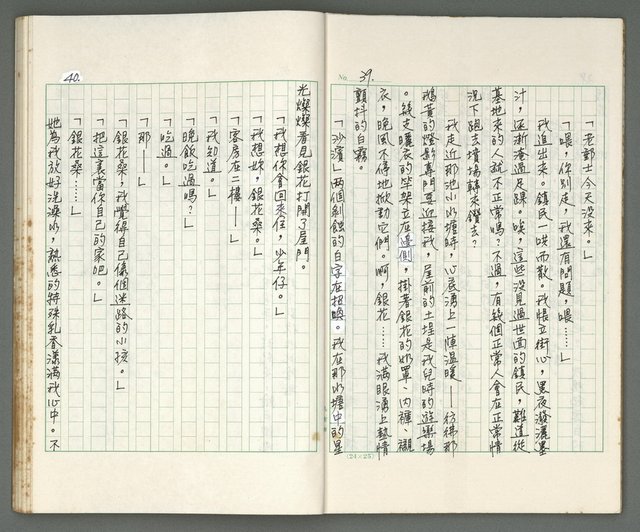 No. 39.
「老鄭士今天沒來。」
「喂,你別走,我還有問題,喂……」
我追出來。鎮民一哄而散。我悵立街心,黑夜潑灑墨
汁,逐漸淹過足踝。唉,這些沒見過世面的鎮民,難道從
墓地來的人就不正常嗎?不過,有幾個正常人會在正常情
況下跑去墳場轉來鑽去?
我走近那池小水塘時,心底湧上一陣溫暖——彷彿那
鵝黃的燈影專門要迎接我,屋前的土埕是我兒時的遊樂場
。幾支曬衣的竿架立在邊側,掛著銀花的奶罩、內褲、襯
衣,晚風不停地掀動它們。啊,銀花……我滿眼湧上熱情
顫抖的白霧。
「沙濱」兩個剝蝕的白字在招喚。我在那水塘中的星
40.
光燦燦看見銀花打開了屋門。
「我想你會回來住,少年仔。」
「我想妳,銀花桑。」
「客房在二樓——」
「我知道。」
「晚飯吃過嗎?」
「吃過。」
「那——」
「銀花桑,我覺得自己像個迷路的小孩。」
「把這裏當你自己的家吧。」
「銀花桑……」
她為我放好洗澡水,熟悉的特殊乳香漾滿我心中。不
(24×25)